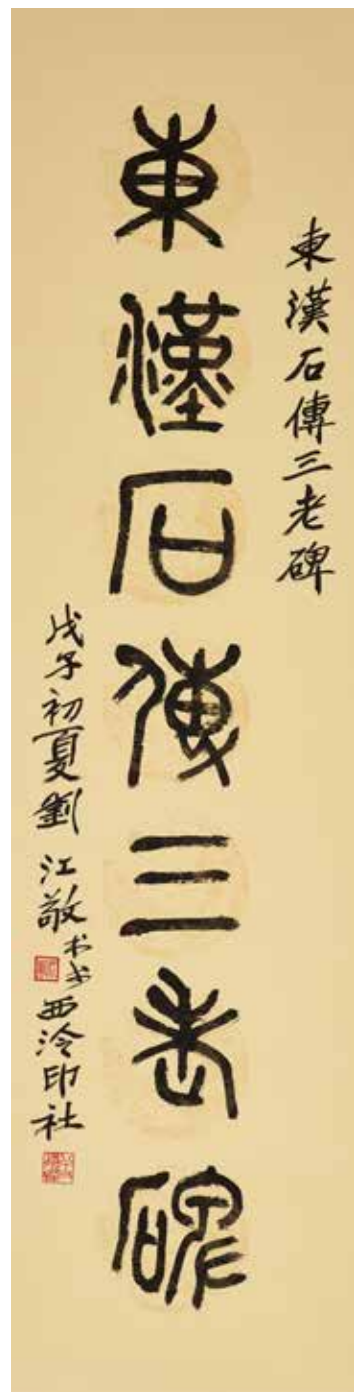 東漢石傳三老碑
東漢石傳三老碑
戊子初夏劉江敬西泠印社